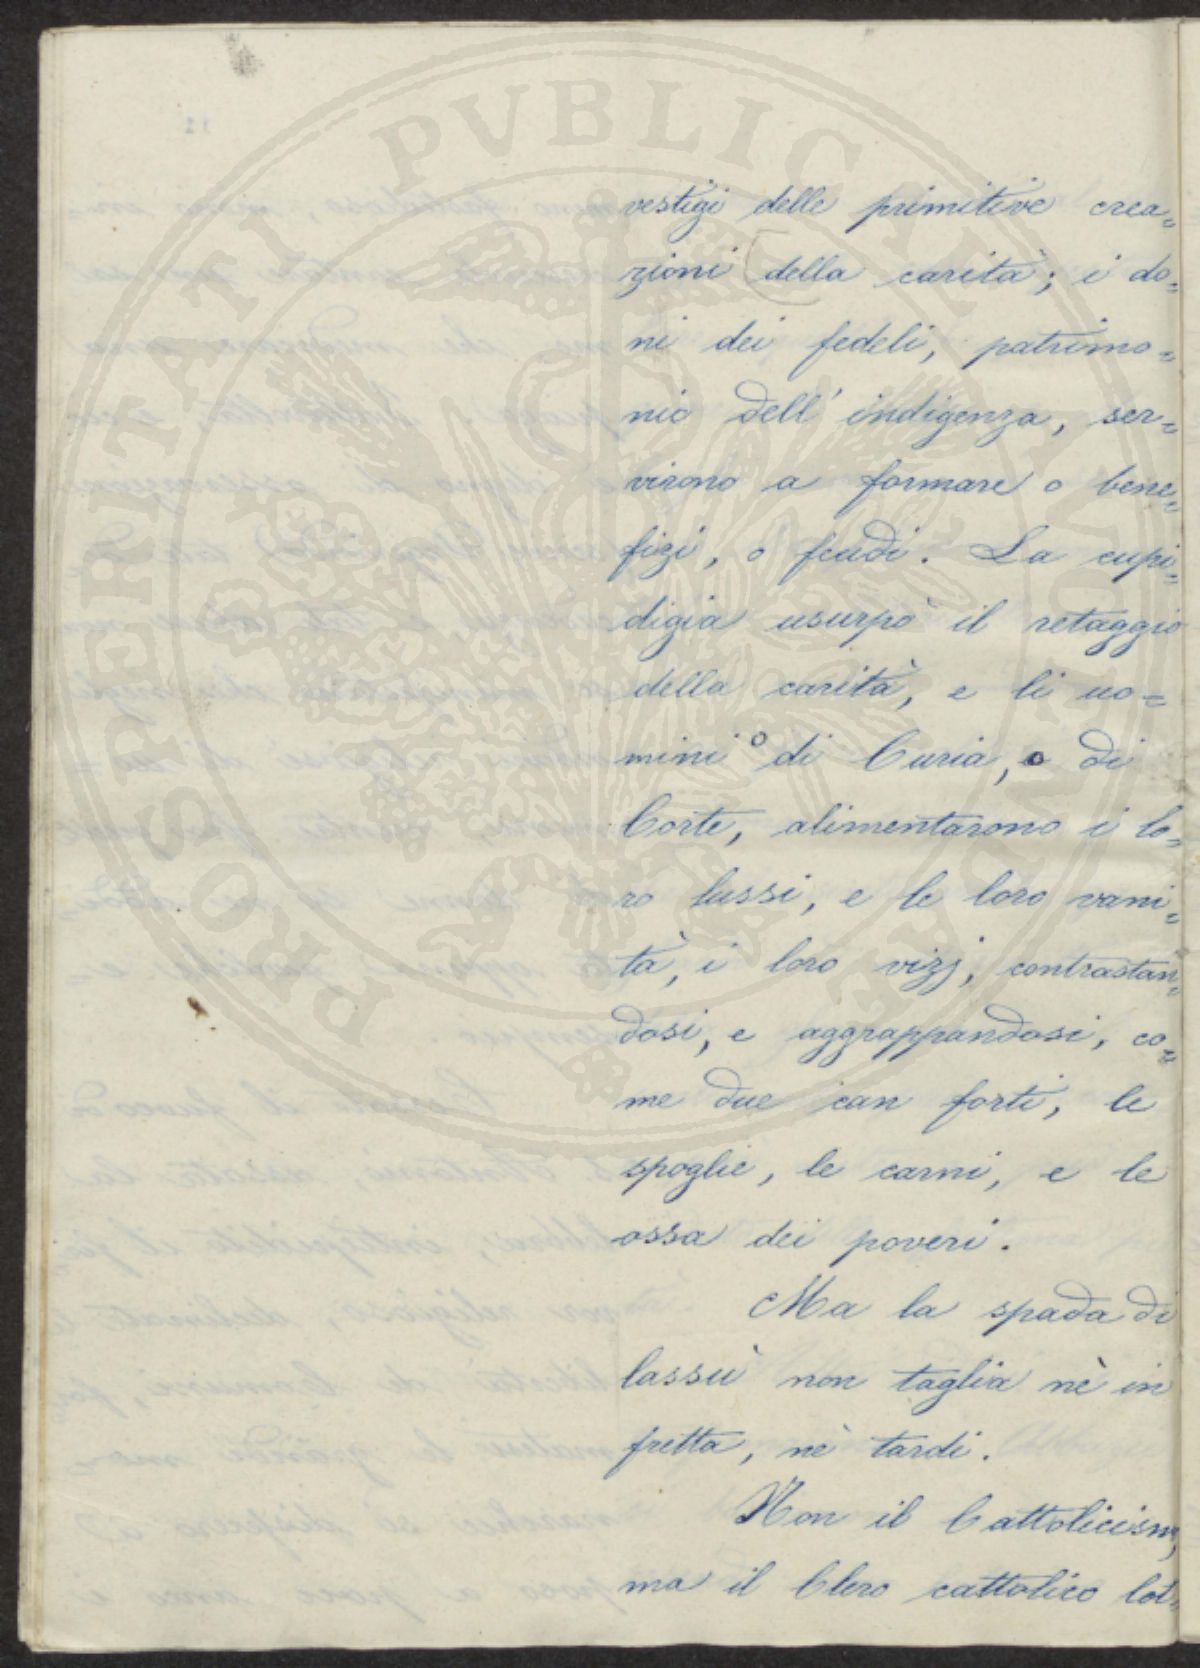 PROSPERITATI PVBLICAE AVGENDAE
vestigi delle primitive crea=
zioni della carità; i do=
ni dei fedeli, patrimo=
nio dell'indigenza, ser=
virono a formare o bene=
fizi, o feudi. La cupi=
digia usurpò il retaggio
della carità, e li uo=
mini o di Curia, o di
Corte, alimentarono i lo=
ro lussi, e le loro vani=
tà, i loro vizj, contrastan=
dosi, e aggrappandosi, co=
me due can forti, le
spoglie, le carni, e le
ossa dei poveri.
Ma la spada di
lassù non taglia nè in
fretta, nè tardi.
Non il Cattolicism,
ma il Clero cattolico lot=